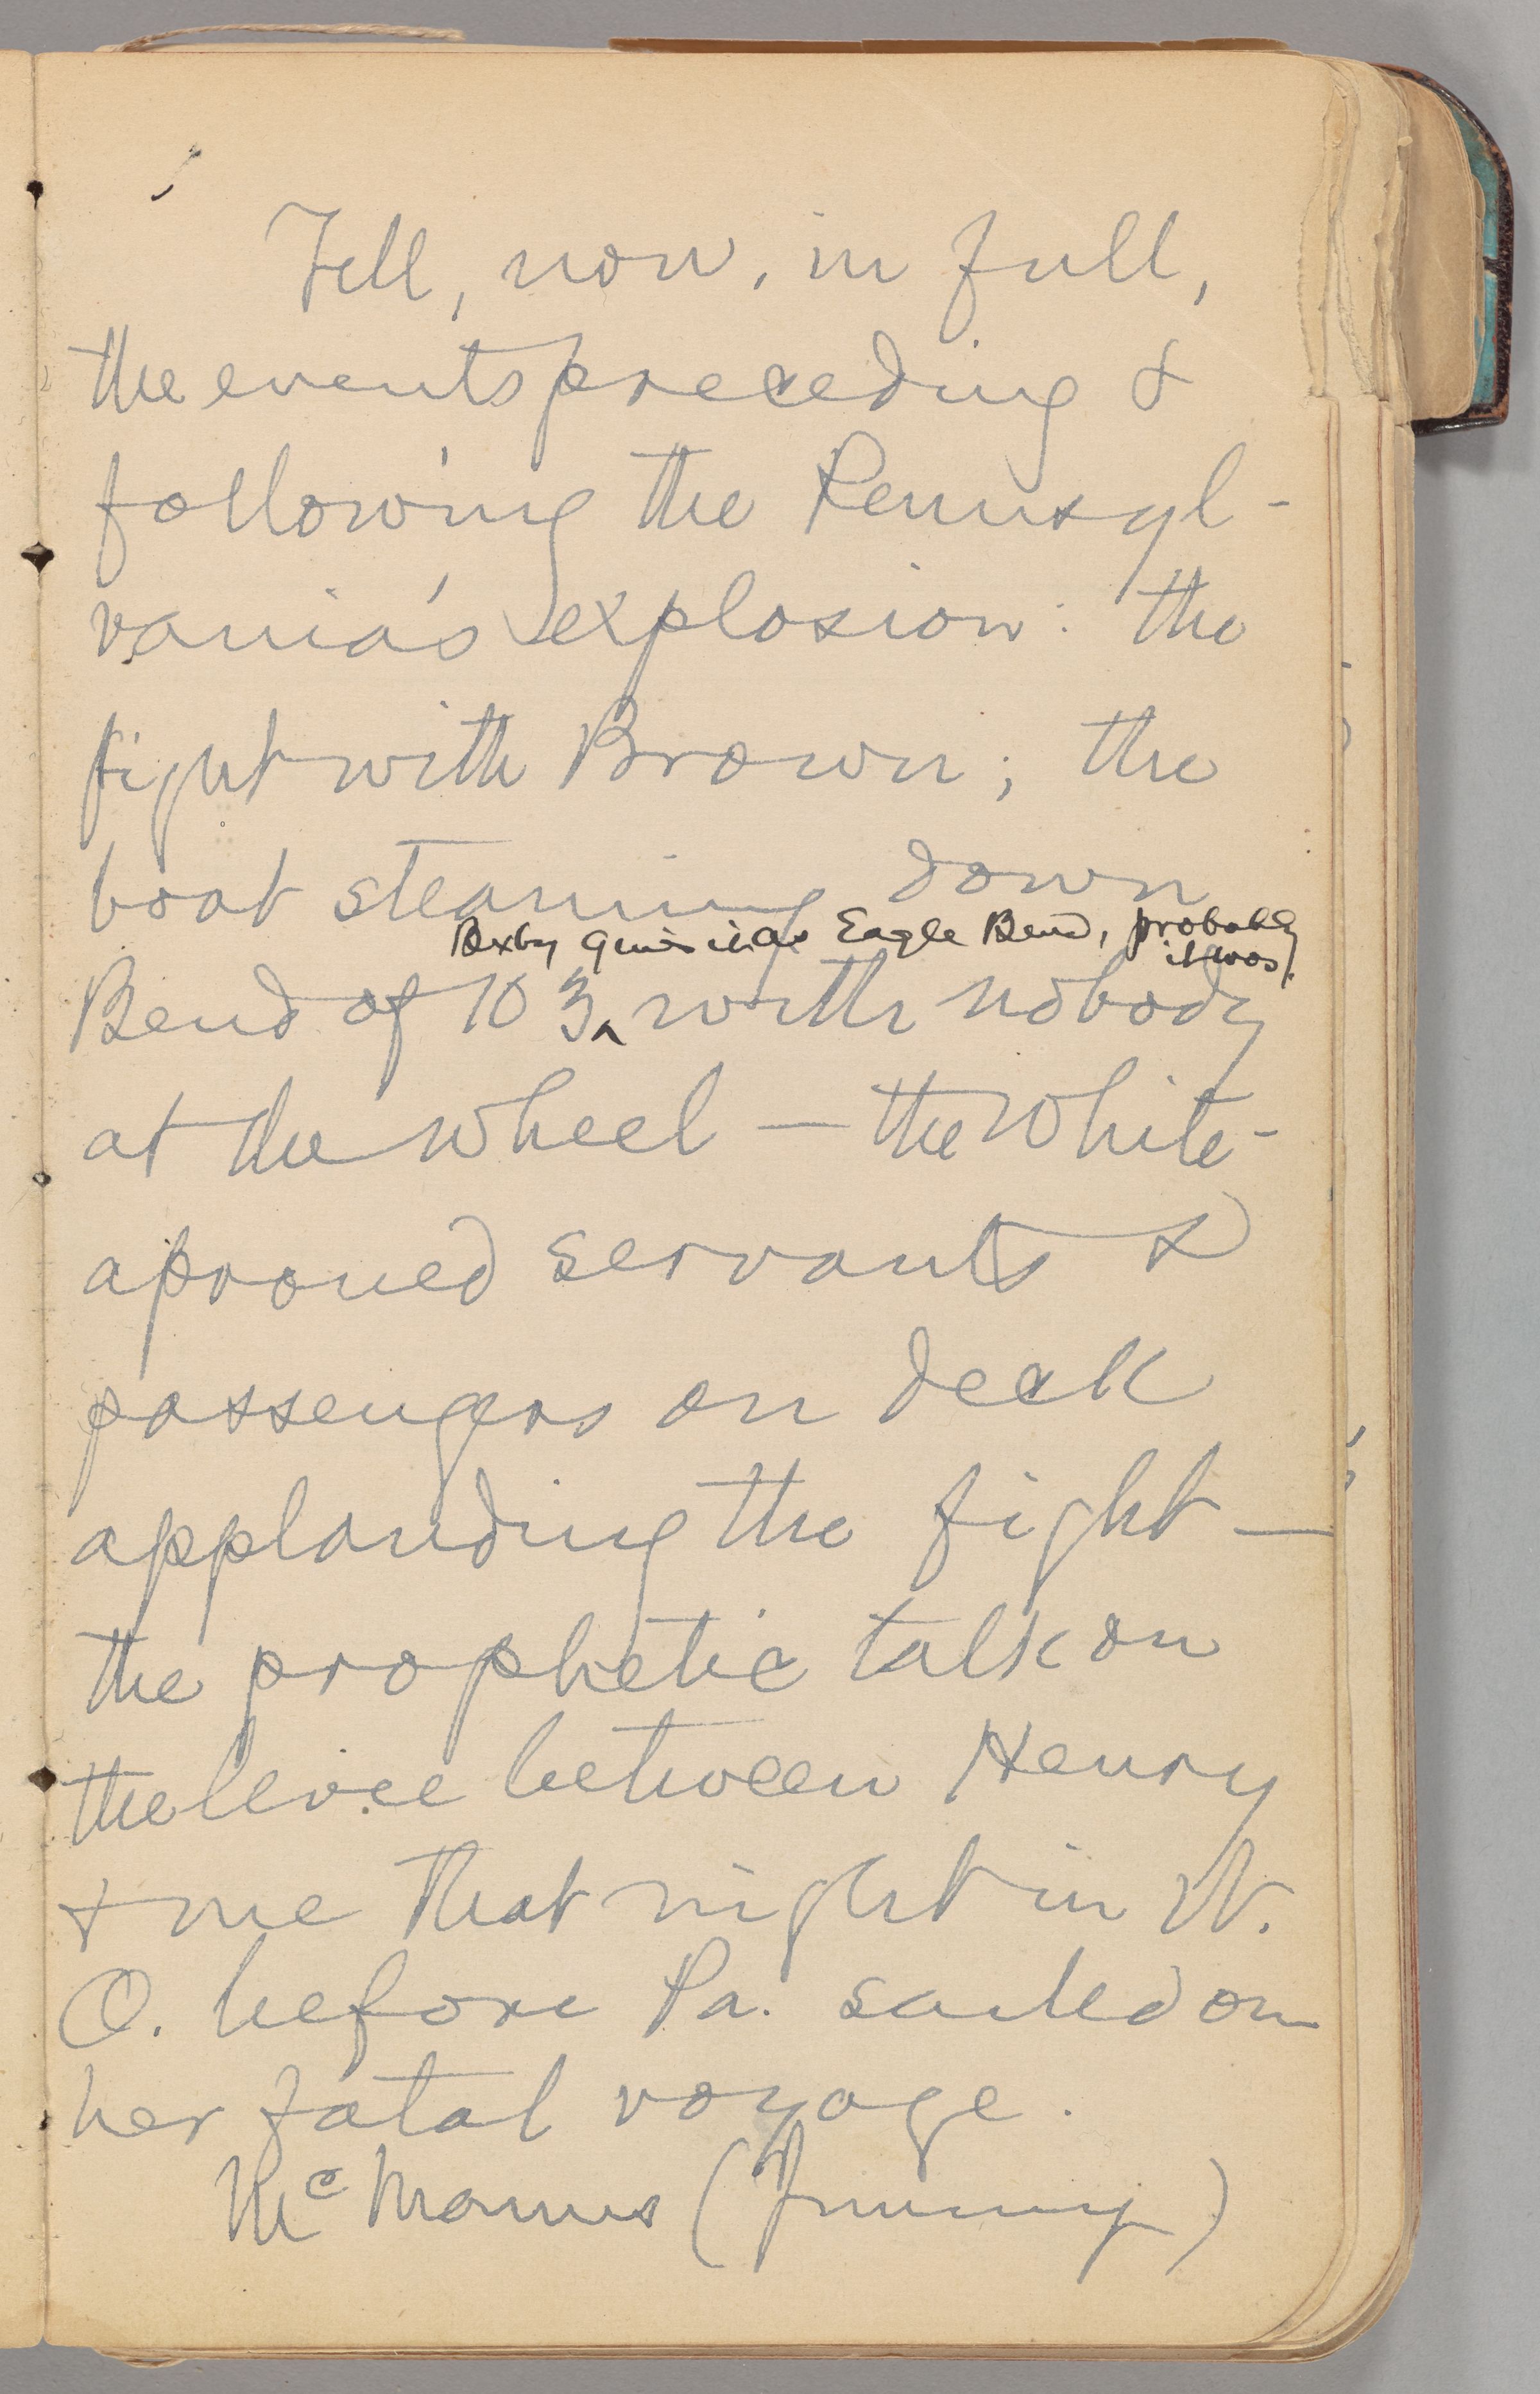 Tell, now, in full,
the events preceding &
following the Pennsyl-
vania's explosion: the
fight with Brown; the
boat steaming down
Bixby gives it as Eagle Bend, probably
it was.
Bend of 103‸ with nobody
at the wheel — the white-
aproned servants &
passengers on deck
applauding the fight —
the prophetic talk on
the levee between Henry
& me that night in N.
O. before Pa. sailed on
her fatal voyage.
McManus (Jimmy)